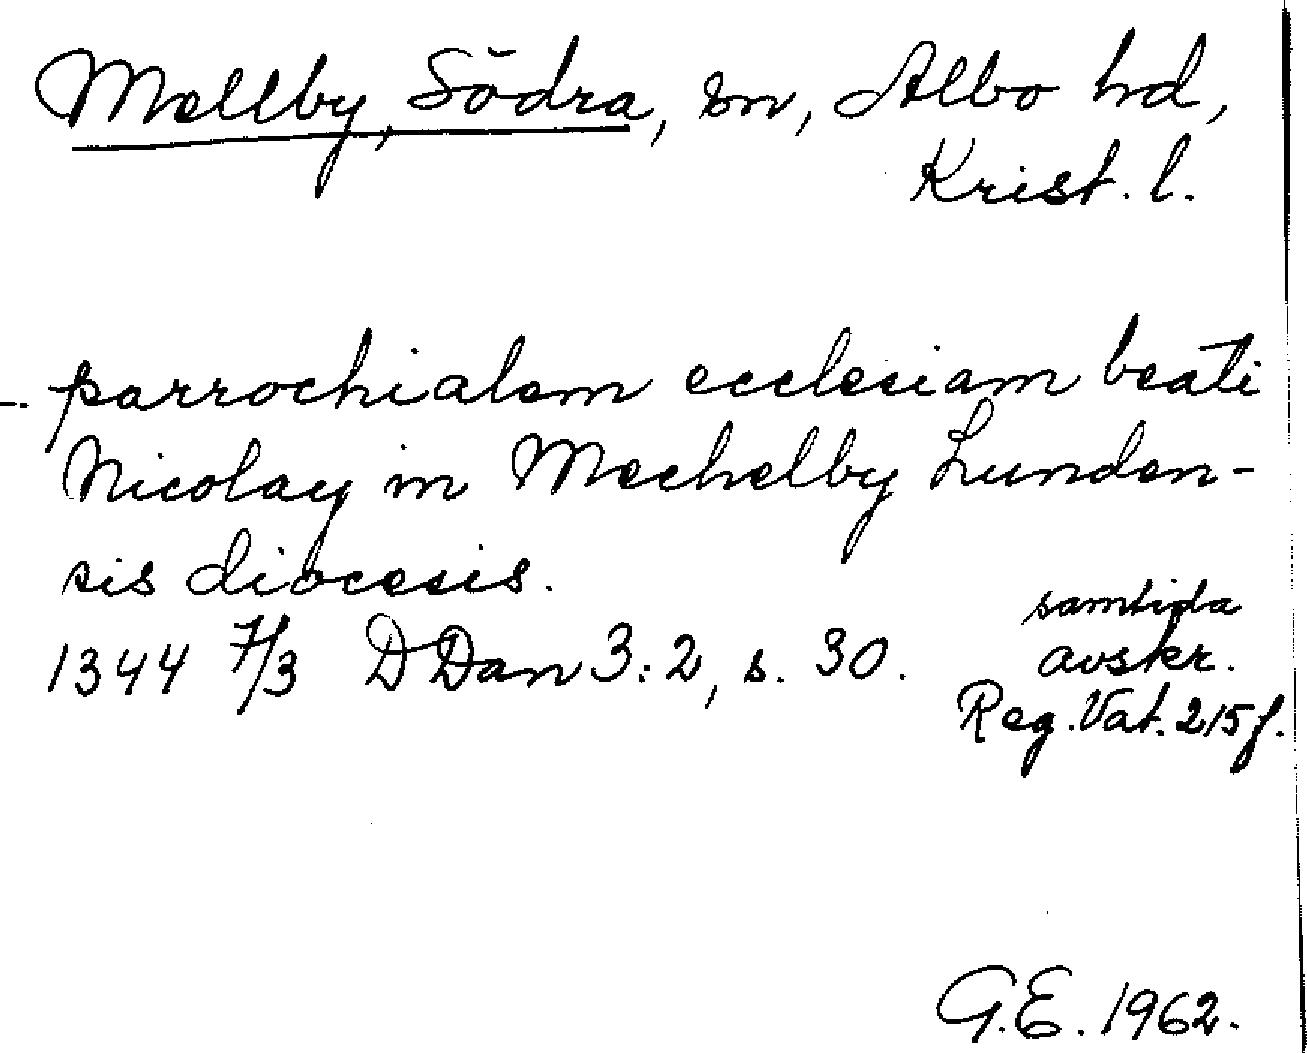 Mellby, Södra, sn, Albo hd,
Krist. l.
parrochialem ecclesiam beati
Nicolay in Mechelby Lunden-
sis diocesis.
1344 7/3 DDan 3:2, s. 30.
samtida
avskr.
Reg. Vat. 215f.
G.E. 1962.